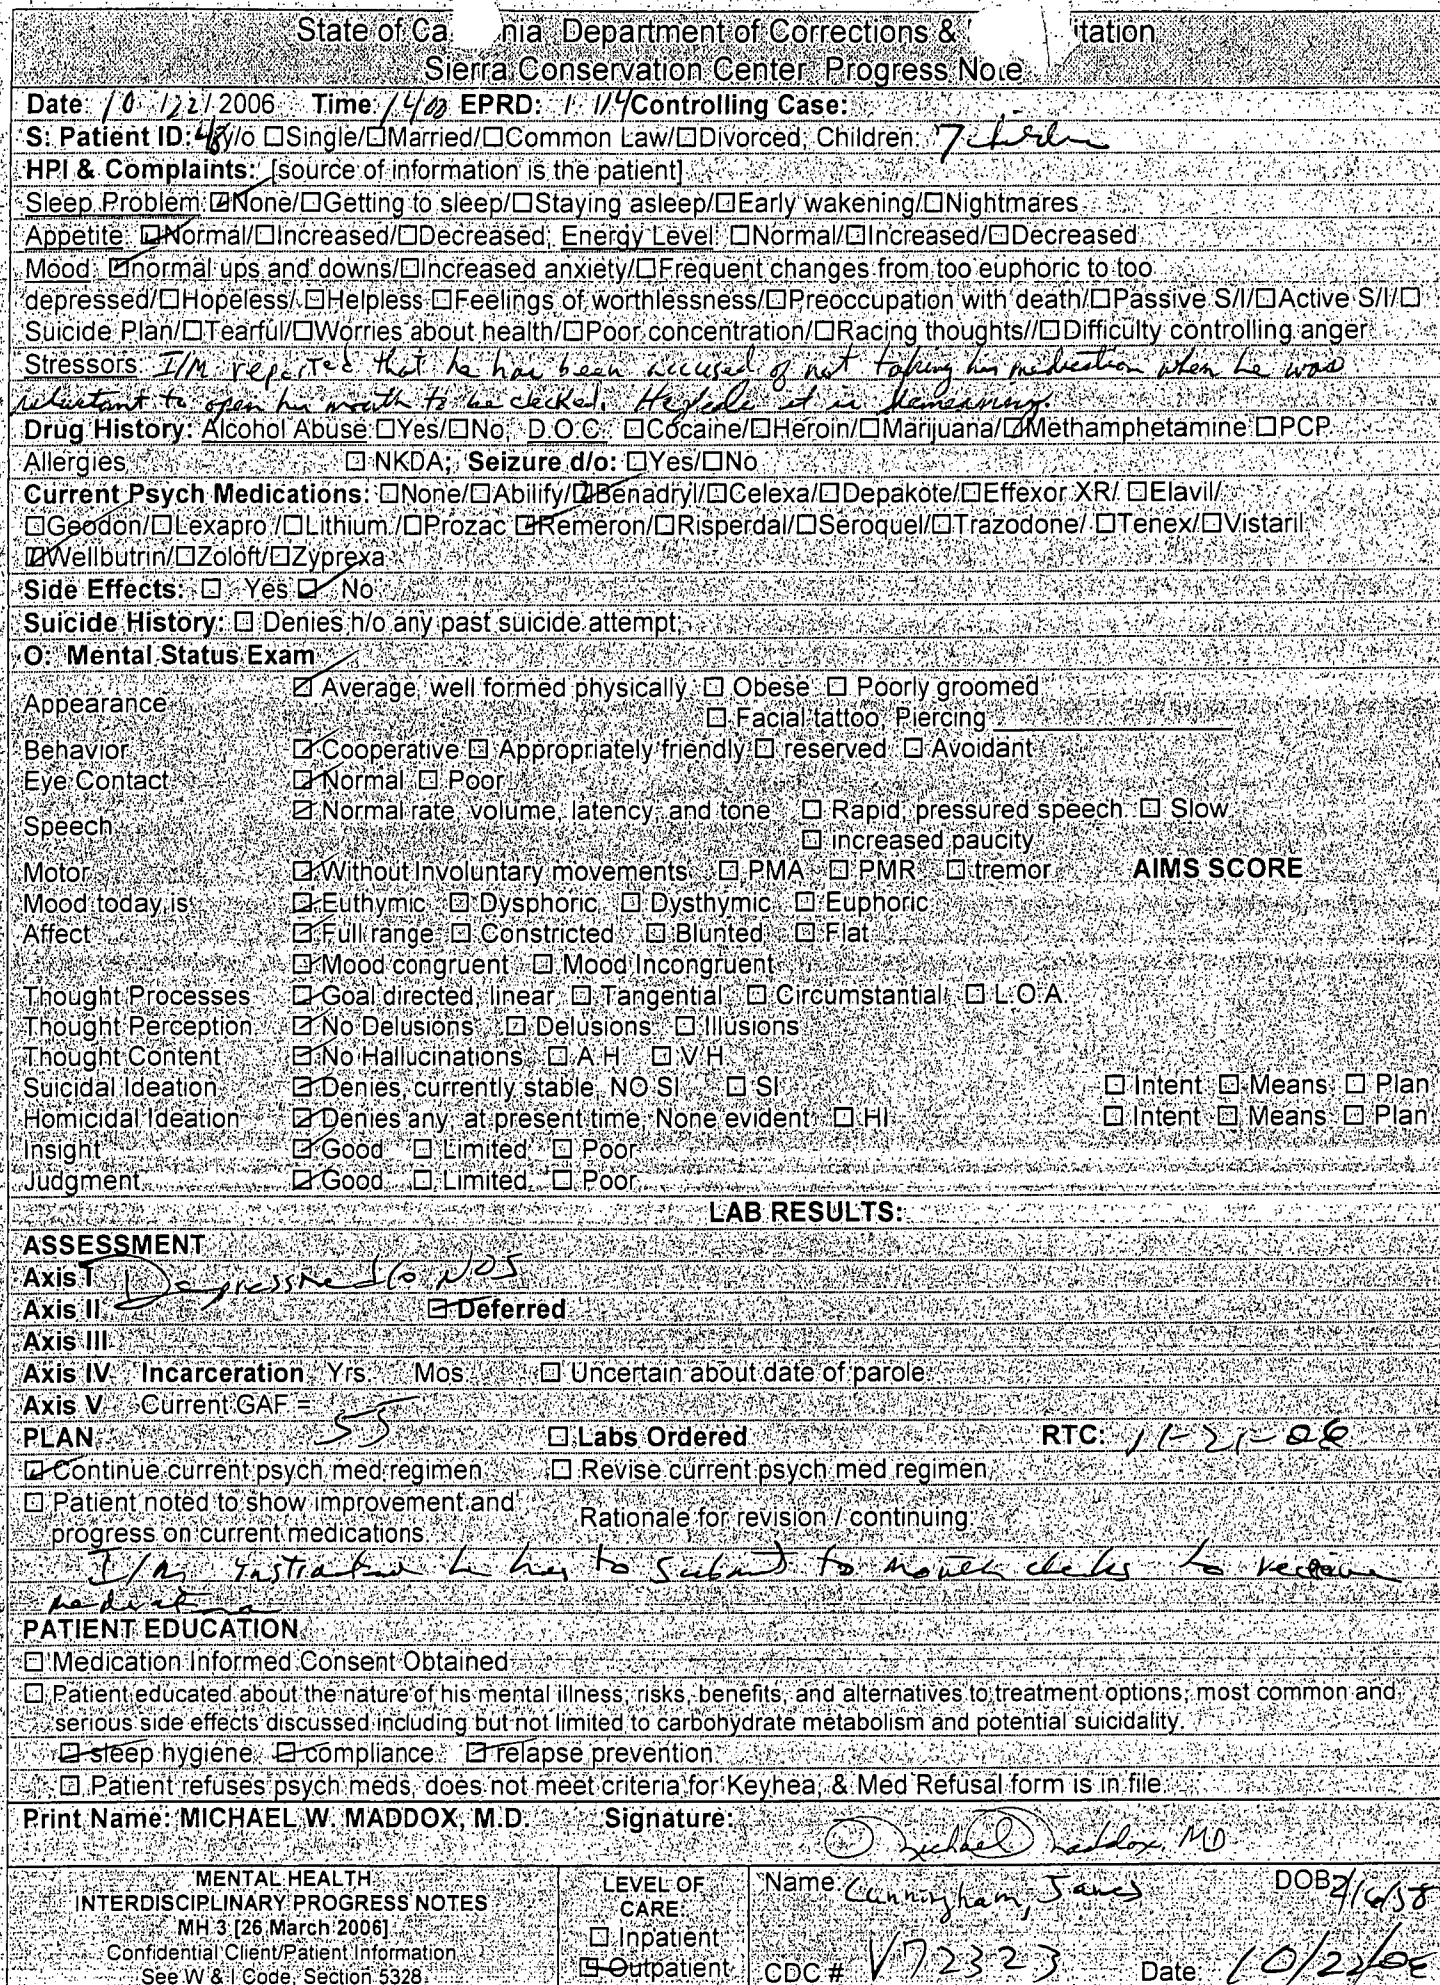 State of Ca nia Department of Corrections & itation
Sierra Conservation Center Progress Note
Date: 10/22/2006 Time: 1400 EPRD: Controlling Case:
S: Patient ID: 48 y/o ☐Single/☐Married/☐Common Law/☐Divorced; Children: 7 children
HPI & Complaints: [source of information is the patient]
Sleep Problem: ☑None/☐Getting to sleep/☐Staying asleep/☐Early wakening/☐Nightmares
Appetite: ☑Normal/☐Increased/☐Decreased; Energy Level: ☐Normal/☐Increased/☐Decreased
Mood: ☑normal ups and downs/☐Increased anxiety/☐Frequent changes from too euphoric to too
depressed/☐Hopeless/☐Helpless ☐Feelings of worthlessness/☐Preoccupation with death/☐Passive S/I/☐Active S/I/☐
Suicide Plan/☐Tearful/☐Worries about health/☐Poor concentration/☐Racing thoughts//☐Difficulty controlling anger
Stressors: I/M reported that he has been accused of not taking his medication when he was
reluctant to open his mouth to be checked. He feels it is demeaning.
Drug History: Alcohol Abuse ☐Yes/☐No; D.O.C. ☐Cocaine/☐Heroin/☐Marijuana/☑Methamphetamine ☐PCP
Allergies ☐ NKDA; Seizure d/o: ☐Yes/☐No
Current Psych Medications: ☐None/☐Abilify/☑Benadryl/☐Celexa/☐Depakote/☐Effexor XR/ ☐Elavil/
☐Geodon/☐Lexapro /☐Lithium /☐Prozac ☑Remeron/☐Risperdal/☐Seroquel/☐Trazodone/ ☐Tenex/☐Vistaril
☑Wellbutrin/☐Zoloft/☐Zyprexa
Side Effects: ☐ Yes ☑ No
Suicide History: ☐ Denies h/o any past suicide attempt;
O: Mental Status Exam
Appearance ☑ Average, well formed physically ☐ Obese ☐ Poorly groomed
☐ Facial tattoo, Piercing
Behavior ☑ Cooperative ☐ Appropriately friendly ☐ reserved ☐ Avoidant
Eye Contact ☑ Normal ☐ Poor
Speech ☑ Normal rate, volume, latency, and tone ☐ Rapid, pressured speech ☐ Slow
☐ increased paucity
Motor ☑ Without Involuntary movements ☐ PMA ☐ PMR ☐ tremor AIMS SCORE
Mood today is ☑ Euthymic ☐ Dysphoric ☐ Dysthymic ☐ Euphoric
Affect ☑ Full range ☐ Constricted ☐ Blunted ☐ Flat
☑ Mood congruent ☐ Mood Incongruent
Thought Processes ☑ Goal directed, linear ☐ Tangential ☐ Circumstantial ☐ L.O.A.
Thought Perception ☑ No Delusions ☐ Delusions ☐ Illusions
Thought Content ☑ No Hallucinations ☐ A H ☐ V H
Suicidal Ideation ☑ Denies, currently stable, NO SI ☐ SI ☐ Intent ☐ Means ☐ Plan
Homicidal Ideation ☑ Denies any, at present time, None evident ☐ HI ☐ Intent ☐ Means ☐ Plan
Insight ☑ Good ☐ Limited ☐ Poor
Judgment ☑ Good ☐ Limited ☐ Poor
LAB RESULTS:
ASSESSMENT
Axis I Depressive d/o NOS
Axis II ☑ Deferred
Axis III
Axis IV Incarceration Yrs. Mos. ☐ Uncertain about date of parole
Axis V Current GAF = 55
PLAN ☐ Labs Ordered RTC: 11-21-06
☑ Continue current psych med regimen ☐ Revise current psych med regimen
☐ Patient noted to show improvement and
progress on current medications Rationale for revision / continuing:
I/M instructed he has to submit to mouth checks to receive
medication
PATIENT EDUCATION
☐ Medication Informed Consent Obtained
☐ Patient educated about the nature of his mental illness; risks, benefits, and alternatives to treatment options; most common and
serious side effects discussed including but not limited to carbohydrate metabolism and potential suicidality
☑ sleep hygiene ☑ compliance ☑ relapse prevention
☐ Patient refuses psych meds, does not meet criteria for Keyhea, & Med Refusal form is in file.
Print Name: MICHAEL W. MADDOX, M.D. Signature: Michael Maddox, MD
MENTAL HEALTH
INTERDISCIPLINARY PROGRESS NOTES
MH 3 [26 March 2006]
Confidential Client/Patient Information
See W & I Code, Section 5328
LEVEL OF
CARE:
☐ Inpatient
☑ Outpatient
Name: Cunningham, James DOB 2/16/58
CDC # V72323 Date 10/23/06